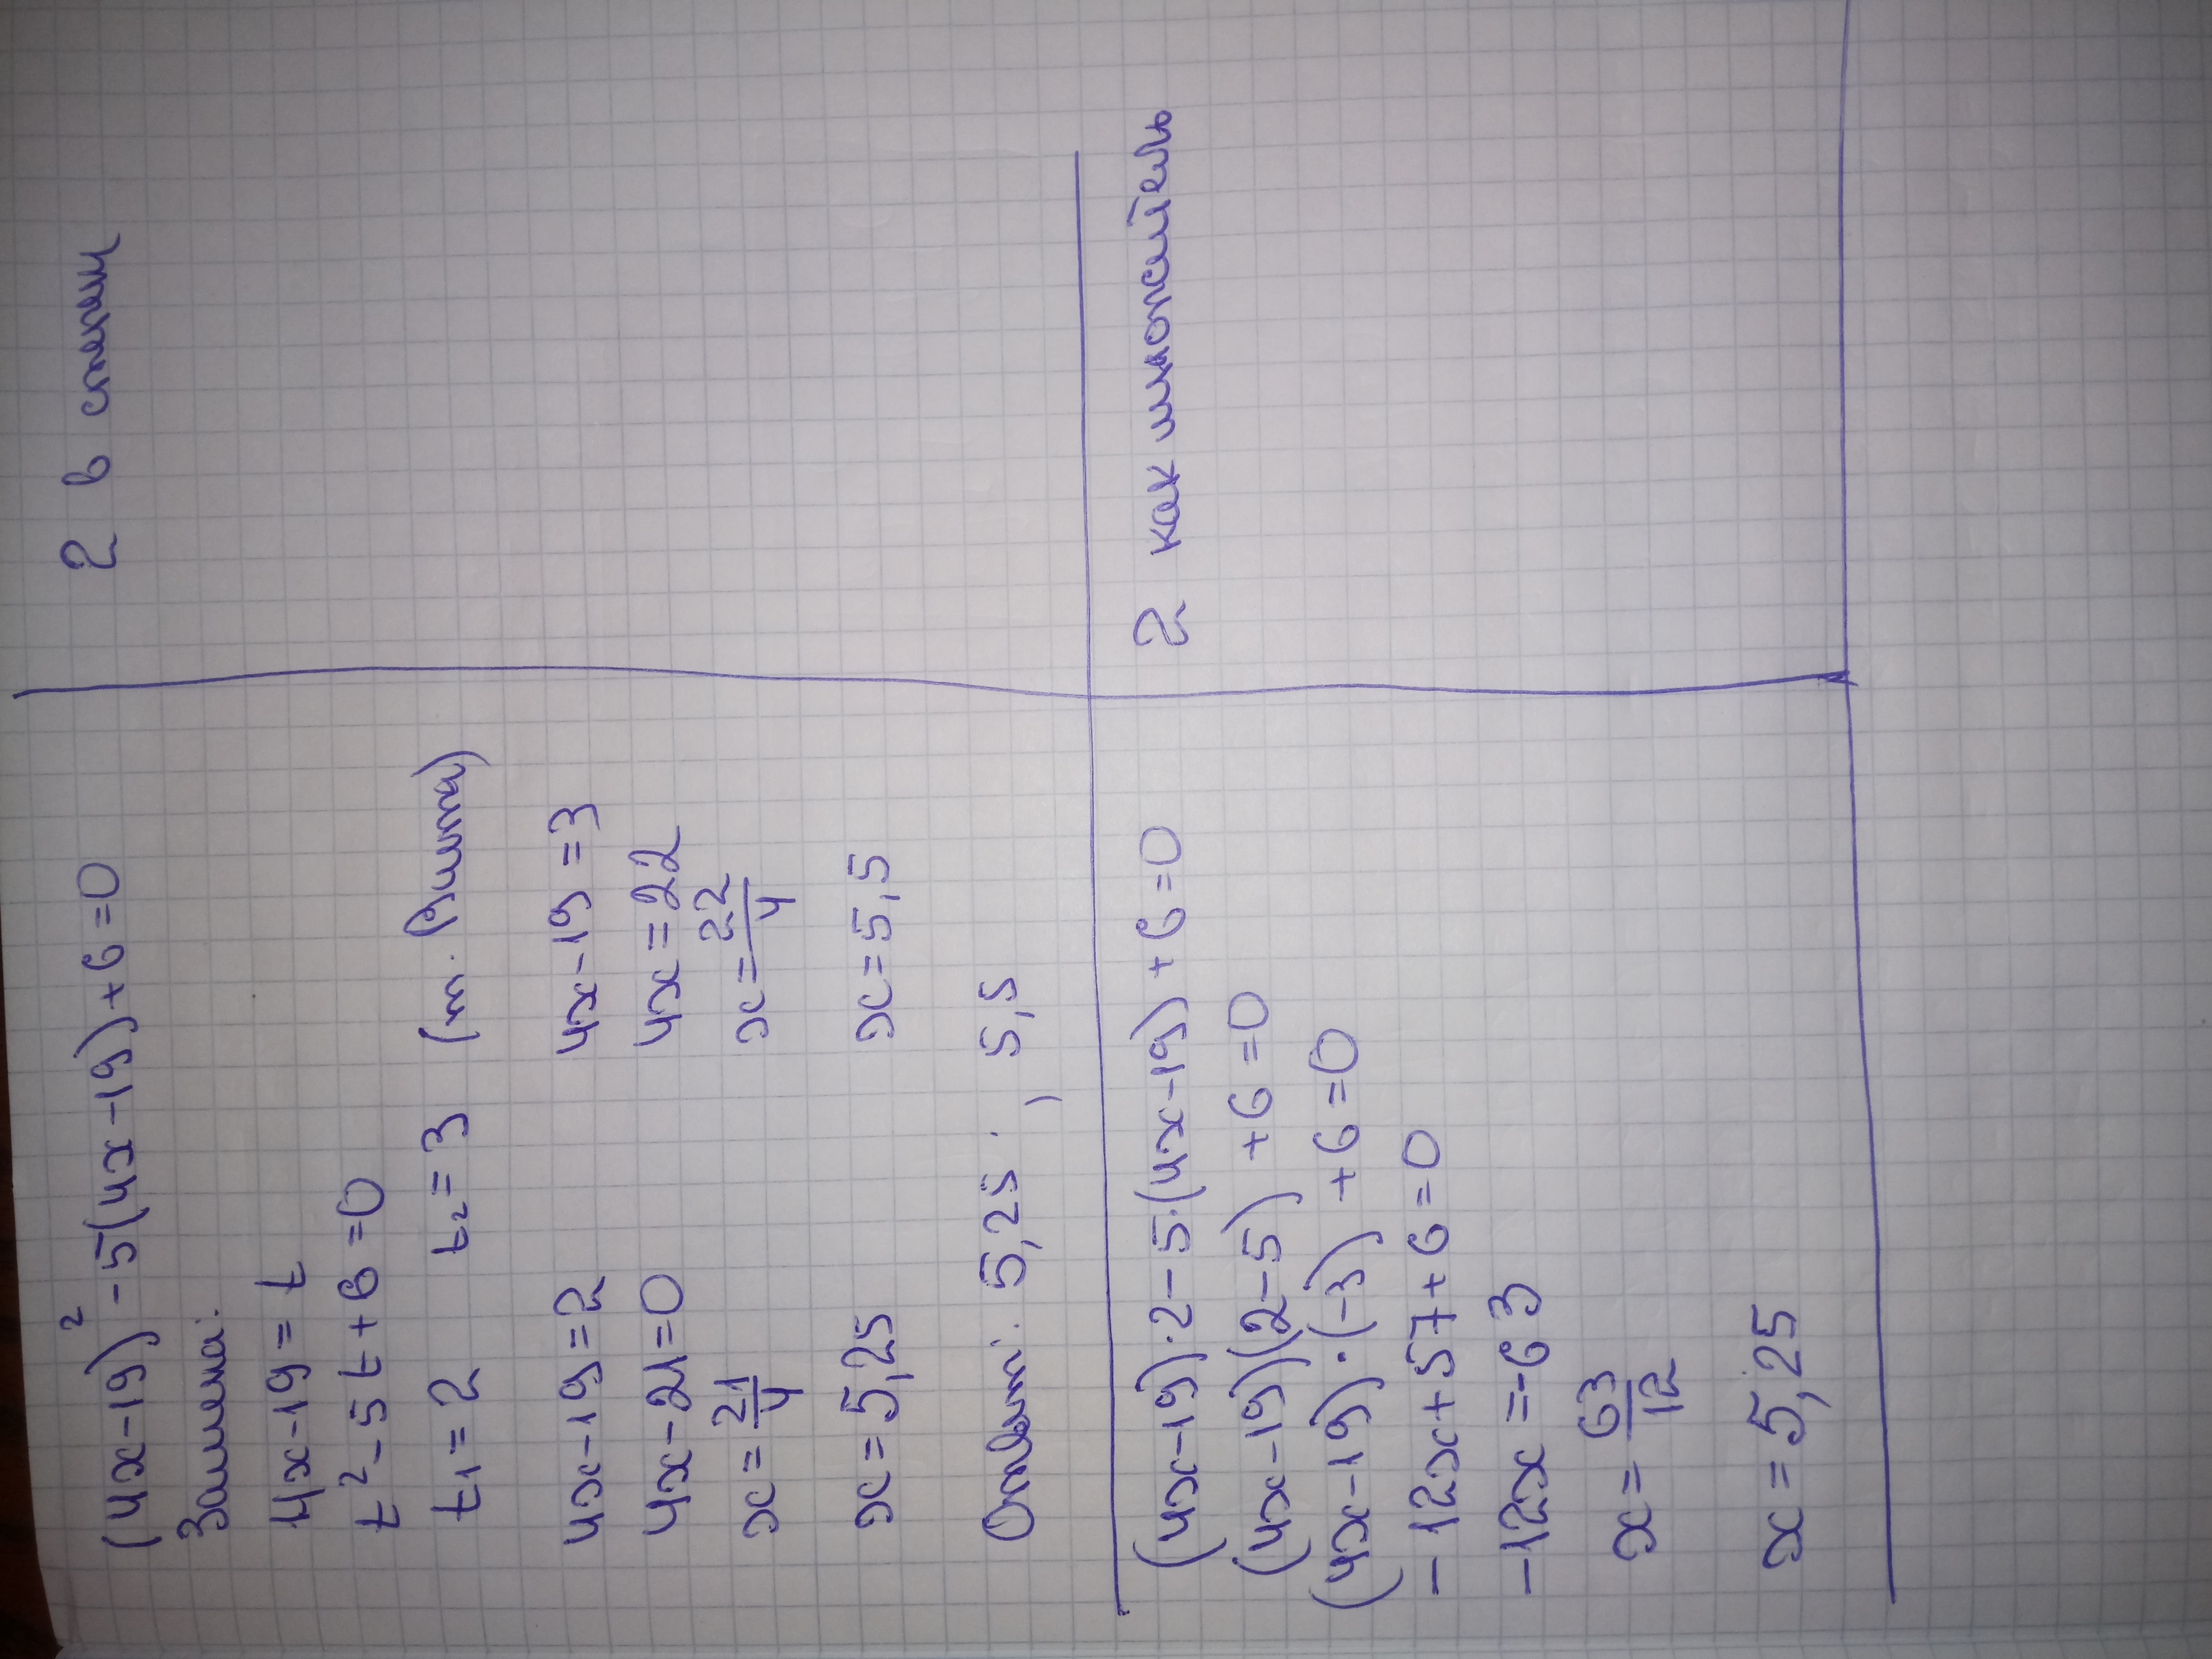 (4x-19)²-5(4x-19)+6=0
2 в степени
Замена:
4x-19=t
t²-5t+6=0
t₁=2 t₂=3 (т. Виета)
4x-19=2 4x-19=3
4x-21=0 4x=22
x=21/4 x=22/4
x=5,25 x=5,5
Ответ: 5,25 ; 5,5
(4x-19)·2-5·(4x-19)+6=0
2 как множитель
(4x-19)(2-5)+6=0
(4x-19)·(-3)+6=0
-12x+57+6=0
-12x=-63
x=63/12
x=5,25